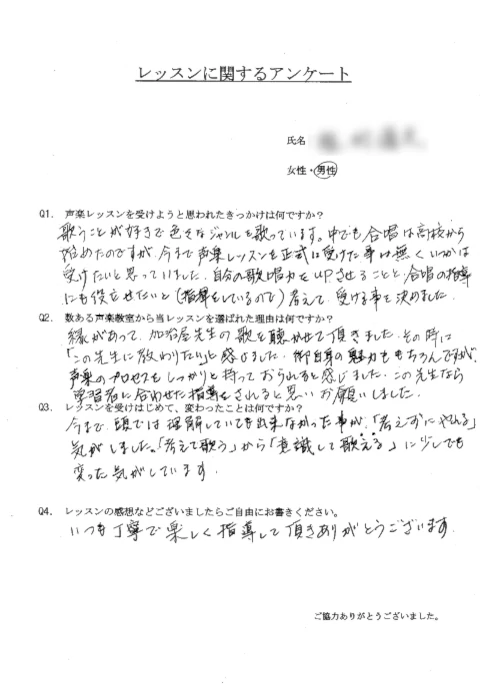 レッスンに関するアンケート
氏名
女性・男性
Q1. 声楽レッスンを受けようと思われたきっかけは何ですか？
歌うことが好きで色々なジャンルを歌っています。中でも合唱は高校から
始めたのですが、今まで声楽レッスンを正式に受けた事は無くいつかは
受けたいと思っていました。自分の歌唱力をUPさせることと、合唱の指導
にも役立せたいと(指揮をしているので)考えて、受ける事を決めました。
Q2. 数ある声楽教室から当レッスンを選ばれた理由は何ですか？
縁があって、加治屋先生の歌を聴かせて頂きました。その時に
「この先生に教わりたい」と感じました。御自身の魅力ももちろんですが、
声楽のプロセスをしっかりと持っておられると感じました。この先生なら
学習者に合わせた指導をされると思いお願いしました。
Q3. レッスンを受けはじめて、変わったことは何ですか？
今まで、頭では理解していても出来なかった事が、「考えずにやれる」
気がしました。「考えて歌う」から「意識して歌える」に少しでも
変った気がしています。
Q4. レッスンの感想などございましたらご自由にお書きください。
いつも丁寧で楽しく指導して頂きありがとうございます。
ご協力ありがとうございました。